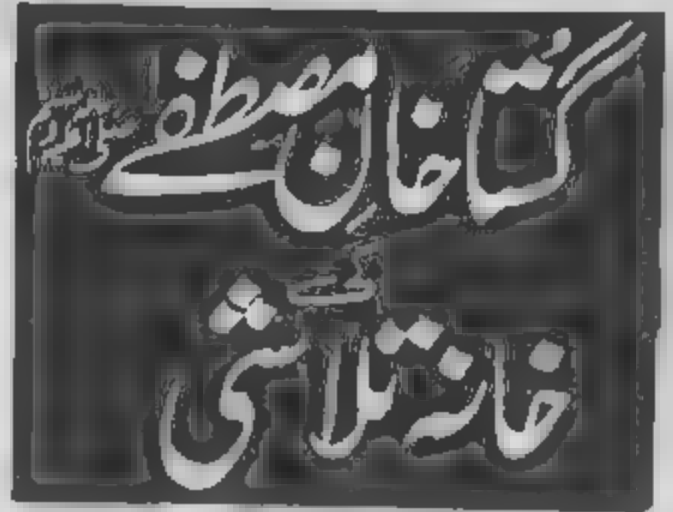 گستاخانِ مصطفےٰ صلی اللہ علیہ وسلم
کے
خانہ تلاشی